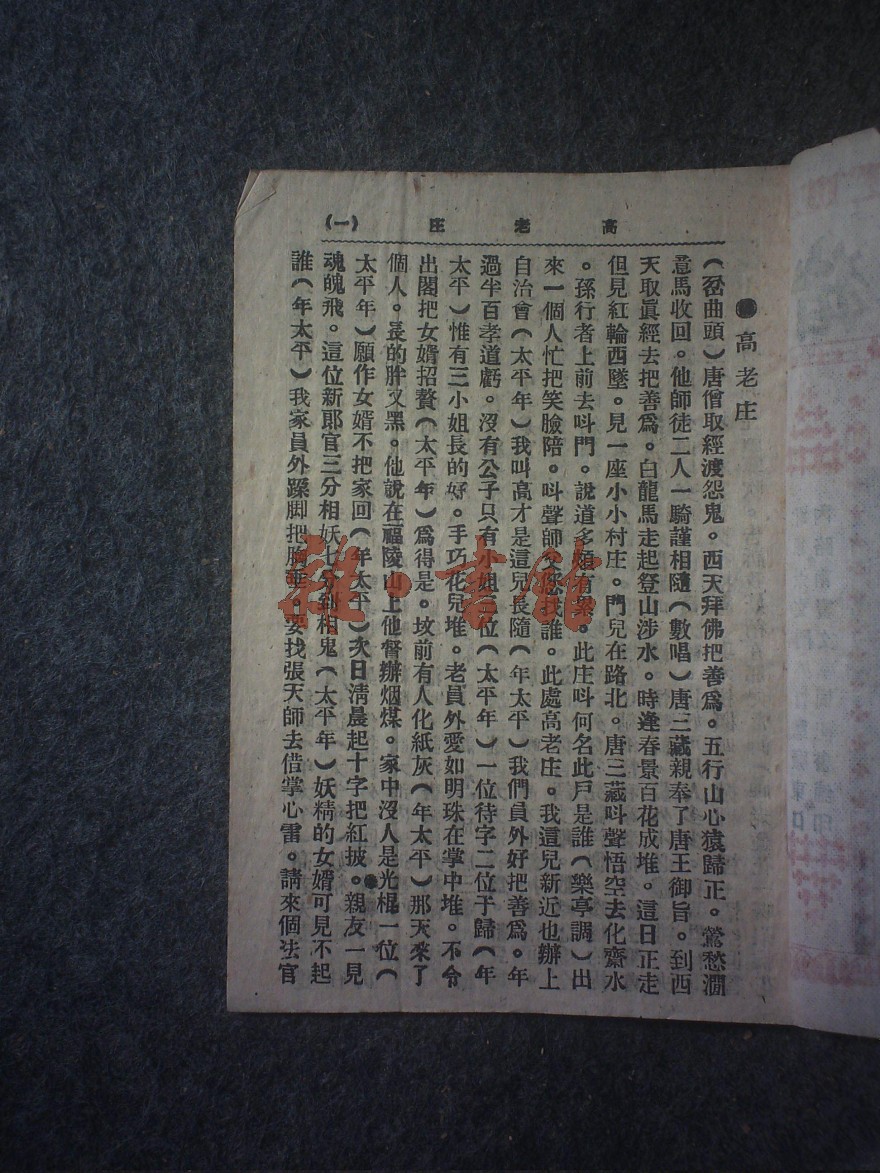 高老庄 (一)
●高老庄
(岔曲頭)唐僧取經渡怨鬼。西天拜佛把善爲。五行山心猿歸正。鶯愁澗
意馬收回。他師徒二人一騎謹相隨(數唱)唐三藏親奉了唐王御旨。到西
天取眞經去把善爲。白龍馬走起登山涉水。時逢春景百花成堆。這日正走
但見紅輪西墜。見一座小小村庄。門兒在路北。唐三藏呌聲悟空去化齋水
。孫行者上前去呌門。說道多煩有累。此庄呌何名此戶是誰(樂亭調)出
來一個人忙把笑臉陪。呌聲師父您我誰。此處高老庄。我這兒新近也辦上
自治會(太平年)我叫高才是這兒長隨(年太平)我們員外好把善爲。年
過半百孝道虧。沒有公子只有小姐三位(太平年)一位待字二位于歸(年
太平)惟有三小姐長的好。手巧花兒堆。老員外愛如明珠在掌中堆。不令
出閣把女婿招贅(太平年)爲得是。坟前有人化紙灰(年太平)那天來了
個人。長的胖又黑。他說在福陵山上他督辦烟煤。家中沒人是光棍一位(
太平年)願作女婿不把家回(年太平)次日淸晨起十字把紅披。親友一見
魂魄飛。這位新郎官三分相妖七分到相鬼(太平年)妖精的女婿可見不起
誰(年太平)我家員外蹂脚把胸捶。要找張天師去借掌心雷。請來個法官
雜·書館